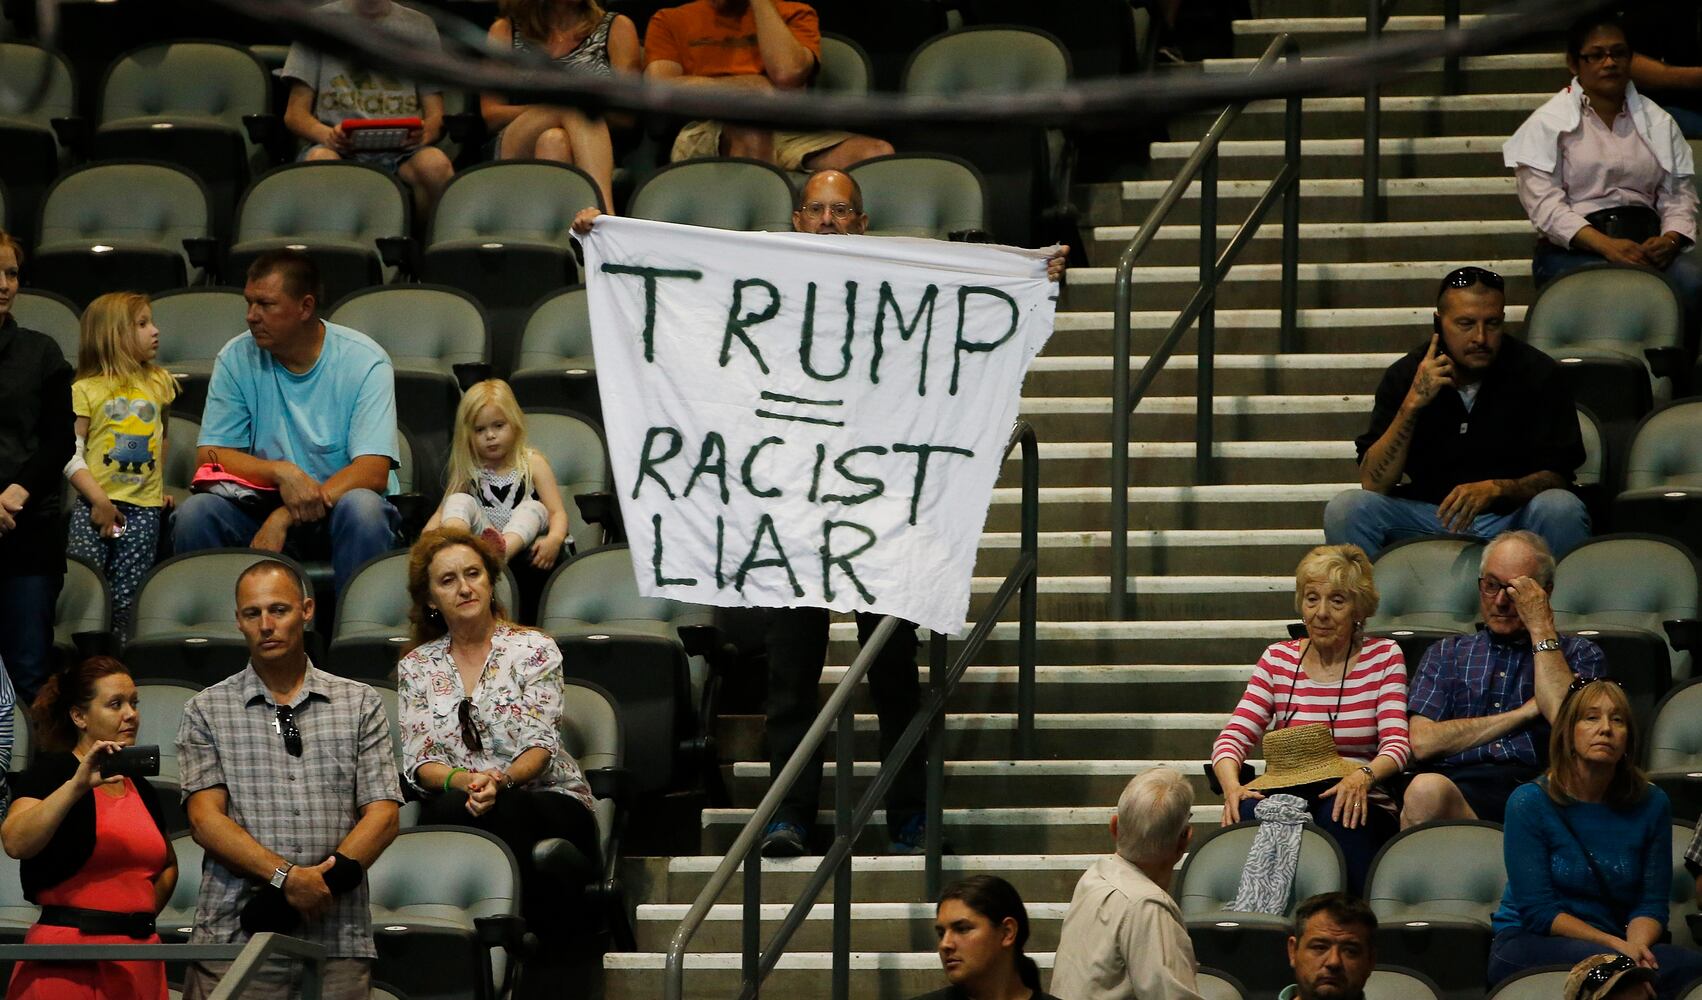 adidas
TRUMP
=
RACIST
LIAR